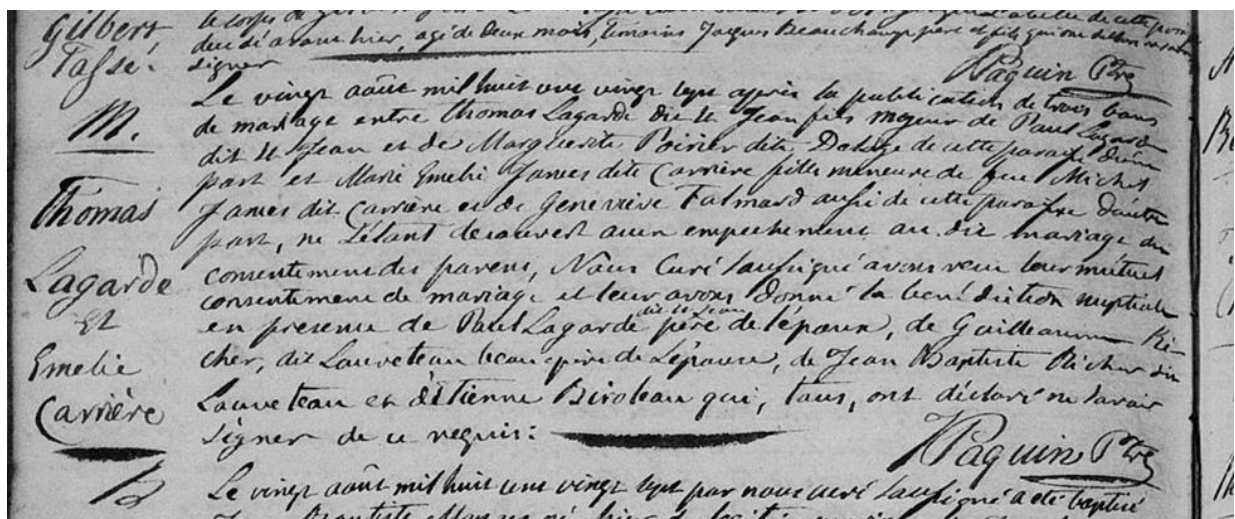 Gilbert
Tassé.
deu d'avant hier, agé de deux mois, temoins Jacques Beauchamp père et fils qui ont declaré ne savoir
signer
JPaquin Ptre
M.
Thomas
Lagarde
Et
Emelie
Carrière
Le vingt août mil huit cent vingt sept après la publication de trois bans
de mariage entre Thomas Lagarde dit St Jean fils majeur de Paul Lagarde
dit St Jean et de Marguerite Poirier dite Deloge de cette paroisse d'une
part et Marie Emelie James dite Carrière fille mineure de feu Michel
James dit Carrière et de Geneviève Talmard aussi de cette paroisse d'autre
part, ne s'étant decouvert aucun empechement au dit mariage du
consentement des parens, Nous Curé soussigné avons reçu leur mutuel
consentement de mariage et leur avons donné la bénédiction nuptiale
en presence de Paul Lagarde dit St Jean père de l'époux, de Guilleaume Ri-
cher, dit Lauveteau beau père de l'épouse, de Jean Baptiste Richer dit
Lauveteau et d'Etienne Biroleau qui, tous, ont déclaré ne savoir
signer de ce requis:
JPaquin Ptre
B
Le vingt août mil huit cent vingt sept par nous curé soussigné a été baptisé